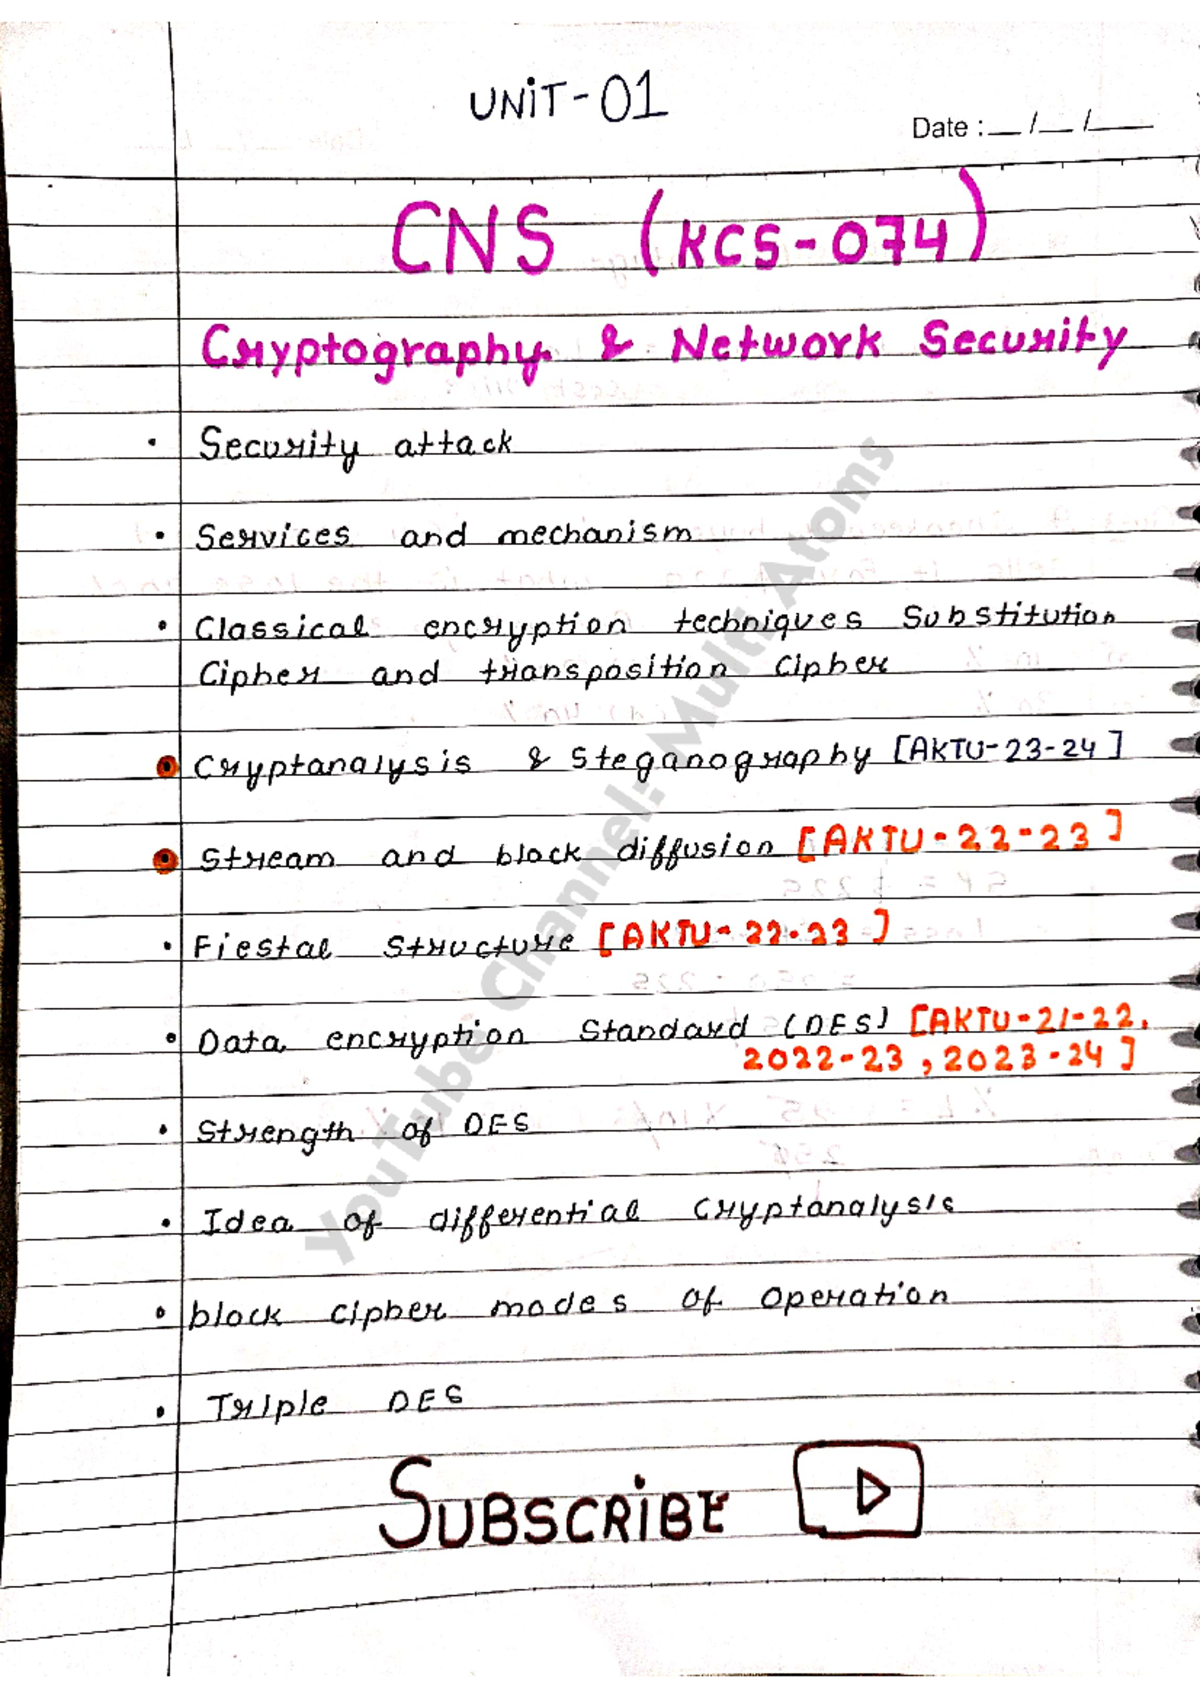 UNiT-01
Date : __ /__ /____
CNS (KCS-074)
Cryptography & Network Security
• Security attack
• Services and mechanism
• Classical encryption techniques Substitution
Cipher and transposition Cipher
• Cryptanalysis & Steganography [AKTU-23-24]
• Stream and block diffusion [AKTU-22-23]
• Fiestal Structure [AKTU-22-23]
• Data encryption Standard (DES) [AKTU-21-22,
2022-23, 2023-24]
• Strength of DES
• Idea of differential Cryptanalysis
• block cipher modes of operation
• Triple DES
SUBSCRiBE
YouTube Channel: Multi Atoms